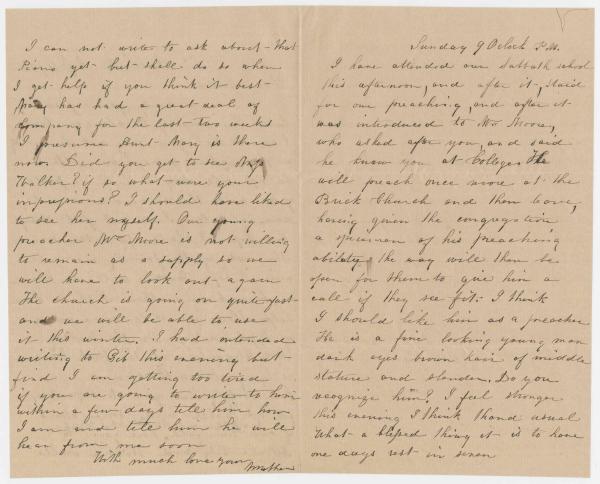 I can not write to ask about that
Piano yet but shall do so when
I get help if you think it best
Mary has had a great deal of
Company for the last two weeks
I presume Aunt Mary is there
now. Did you get to see
Walker? if so what were your
impressions? I should have liked
to see her myself. Our young
preacher Mr Moore is not willing
to remain as a supply so we
will have to look out again
The church is going on quite fast
and we will be able to use
it this winter. I had intended
writing to Gib this evening but
find I am getting too tired
if you are going to write to him
within a few days tele him how
I am and tele him he will
hear from me soon
With much love your Mother
Sunday 9 Oclock P.M.
I have attended our Sabbath school
this afternoon, and after it, staid
for our preaching, and after it
was introduced to Mr Moore,
who asked after you, and said
he knew you at College. He
will preach once more at the
Brick Church and then leave,
having given the congregation
a specimen of his preaching
ability, the way will then be
open for them to give him a
call if they see fit: I think
I should like him as a preacher
He is a fine looking young man
dark eyes brown hair of middle
stature and slender. Do you
recognize him? I feel stronger
this evening I think thand usual
What a blessed thing it is to have
one days rest in seven